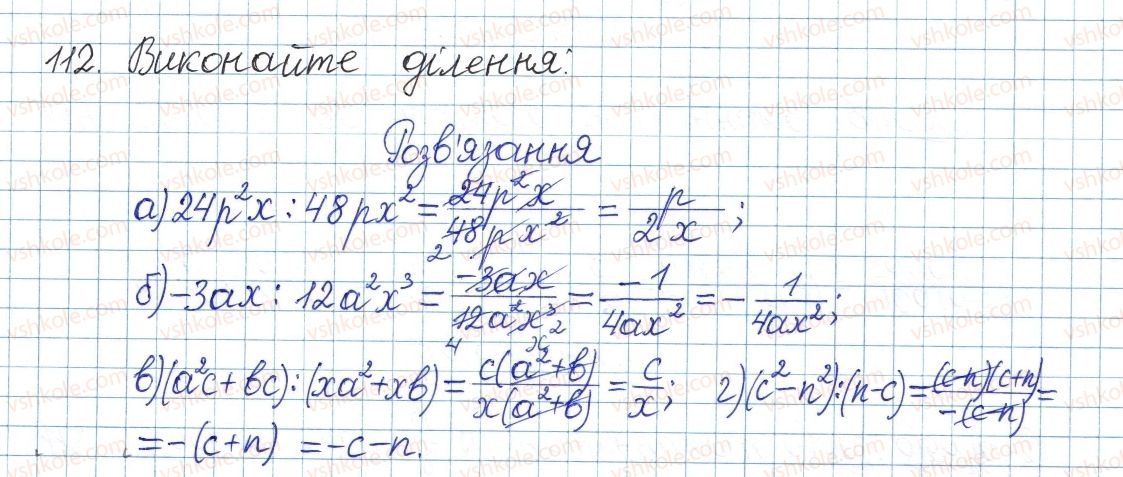 112. Виконайте ділення:
Розв'язання
а) 24p²x : 48px² = 24p²x / 48px² 2 = p / 2x ;
б) -3ax : 12a²x³ = -3ax / 12a²x³ 4 x² = -1 / 4ax² = - 1 / 4ax² ;
в) (a²c + вc) : (xa² + xв) = c(a² + в) / x(a² + в) = c / x ; г) (c² - n²) : (n - c) = (c - n)(c + n) / -(c - n) =
= -(c + n) = -c - n.